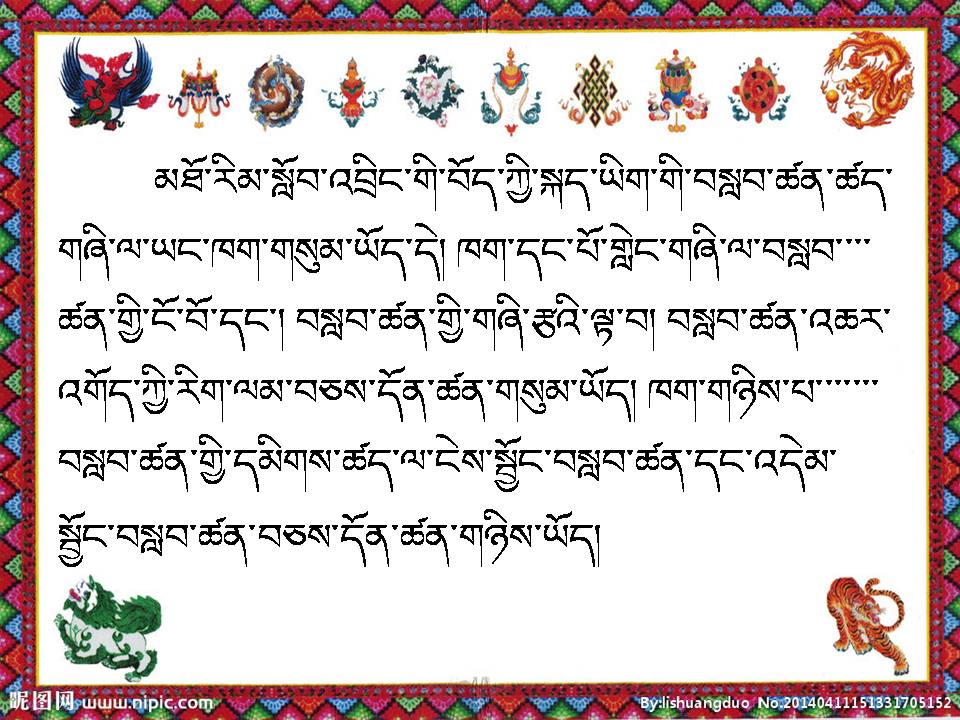 མཐོ་རིམ་སློབ་འབྲིང་གི་བོད་ཀྱི་སྐད་ཡིག་གི་བསླབ་ཚན་ཚད་
གཞི་ལ་ཡང་ཁག་གསུམ་ཡོད་དེ། ཁག་དང་པོ་གླེང་གཞི་ལ་བསླབ་་་་
ཚན་གྱི་ངོ་བོ་དང་། བསླབ་ཚན་གྱི་གཞི་རྩའི་ལྟ་བ། བསླབ་ཚན་འཆར་
འགོད་ཀྱི་རིག་ལམ་བཅས་དོན་ཚན་གསུམ་ཡོད། ཁག་གཉིས་པ་་་་་་་
བསླབ་ཚན་གྱི་དམིགས་ཚད་ལ་ངེས་སྦྱོང་བསླབ་ཚན་དང་འདེམ་
སྦྱོང་བསླབ་ཚན་བཅས་དོན་ཚན་གཉིས་ཡོད།
昵图网 www.nipic.com
By:lishuangduo No.20140411151331705152